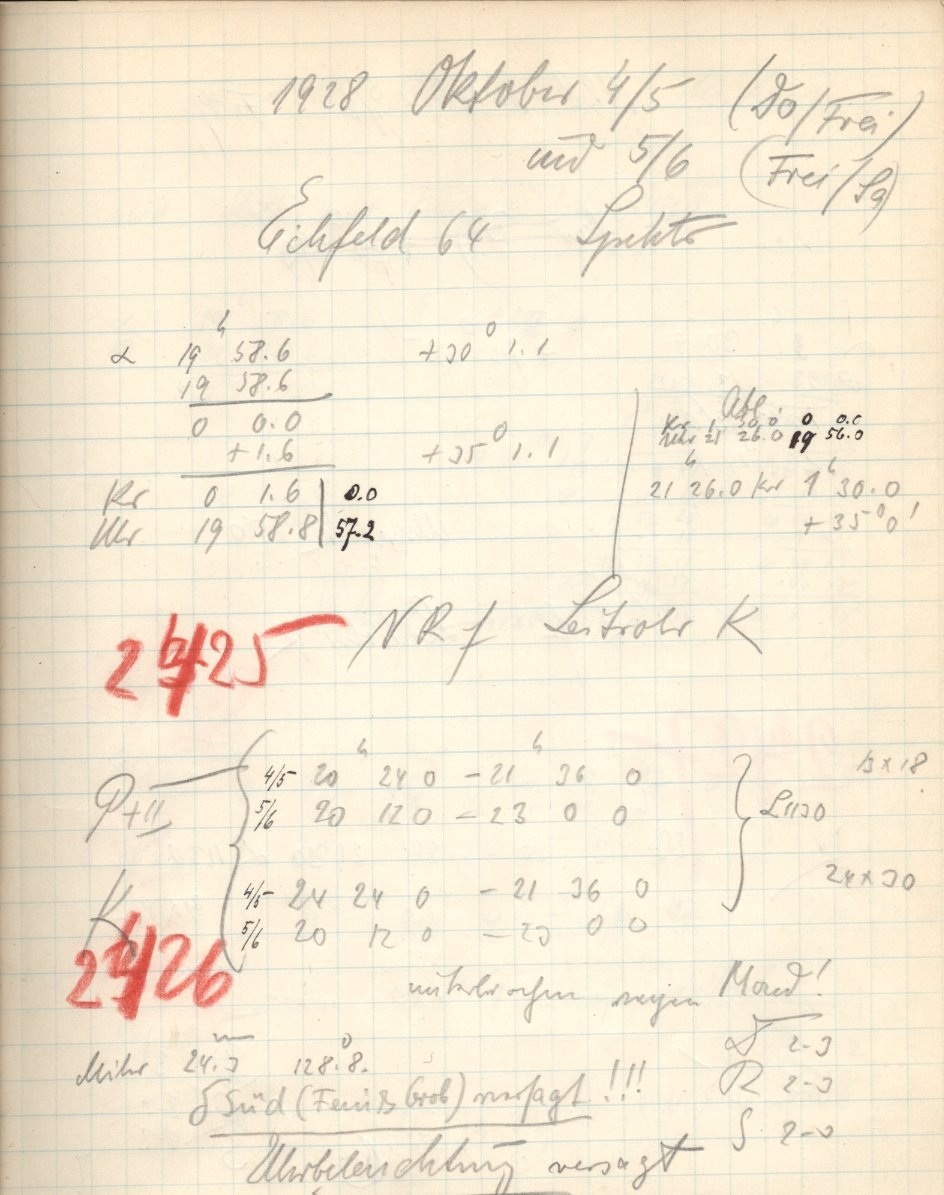 1928 Oktober 4/5 (Do/Frei)
und 5/6 (Frei/Sa)
Eichfeld 64 Spektr
α 19h 58.6 +30° 1.1
19 58.6
0 0.0
+1.6 +35° 1.1
Kr 0 1.6 | 0.0
Uhr 19 58.8 | 57.2
Abl
Kr 1 30.0 0 0.0
Uhr 21 26.0 19 56.0
21h 26.0 Kr 1h 30.0
+35° 0'
25
NRf Leitrohr K
P+II
4/5 20h 24 0 - 21h 36 0
5/6 20 12 0 - 23 0 0
13 x 18
K
4/5 24 24 0 - 21 36 0
5/6 20 12 0 - 23 0 0
24 x 30
/26
unterbrochen wegen Mond!
Mikr 24.3 128.8.
2-3
R 2-3
S 2-3
δ Süd (Fein & Grob) versagt !!!
Uhrbeleuchtung versagt